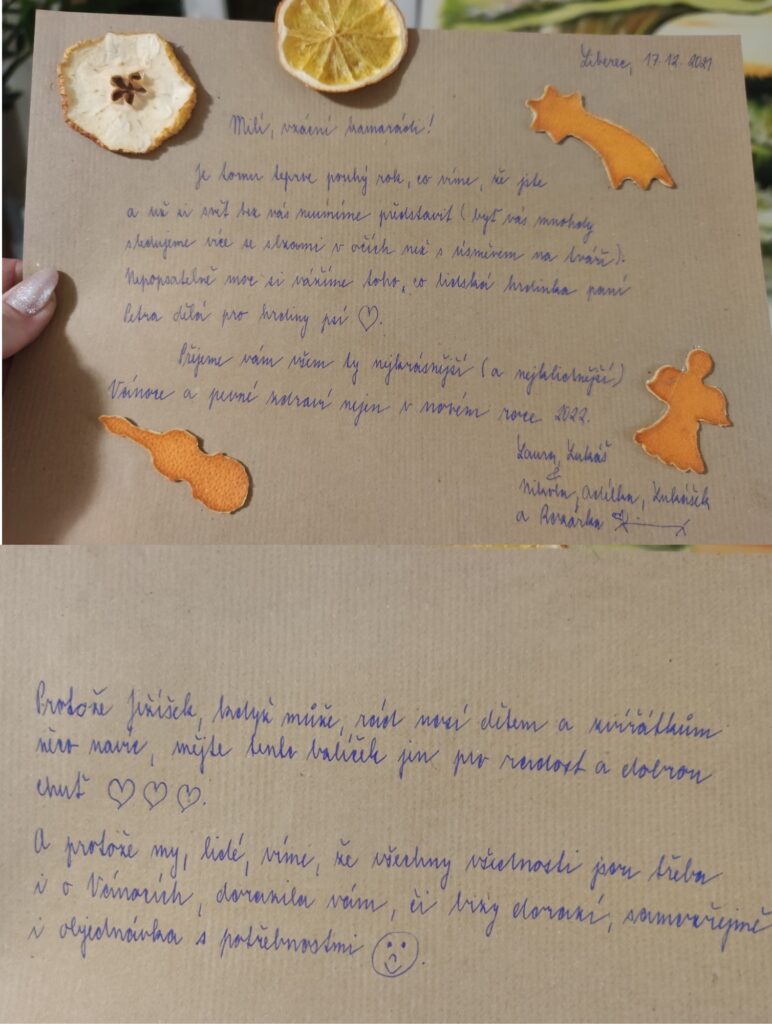 Liberec, 17.12. 2021
Milí, vzácní kamarádi!
Je tomu teprve pouhý rok, co víme, že jste
a už si svět bez vás neumíme představit (byť vás mnohdy
sledujeme více se slzami v očích než s úsměvem na tváři).
Nepopsatelně moc si vážíme toho, co lidská hrdinka paní
Petra dělá pro hrdiny psí ♡.
Přejeme vám všem ty nejkrásnější (a nejklidnější)
Vánoce a pevné zdraví nejen v novém roce 2022.
Laura, Lukáš
Nikola, Adélka, Lukášek
a Rozárka
Protože Ježíšek, když může, rád nosí dětem a zvířátkům
něco navíc, mějte tento balíček jen pro radost a dobrou
chuť ♡♡♡.
A protože my, lidé, víme, že všechny všednosti jsou třeba
i o Vánocích, dorazila vám, či brzy dorazí, samozřejmě
i objednávka s potřebnostmi ☺.